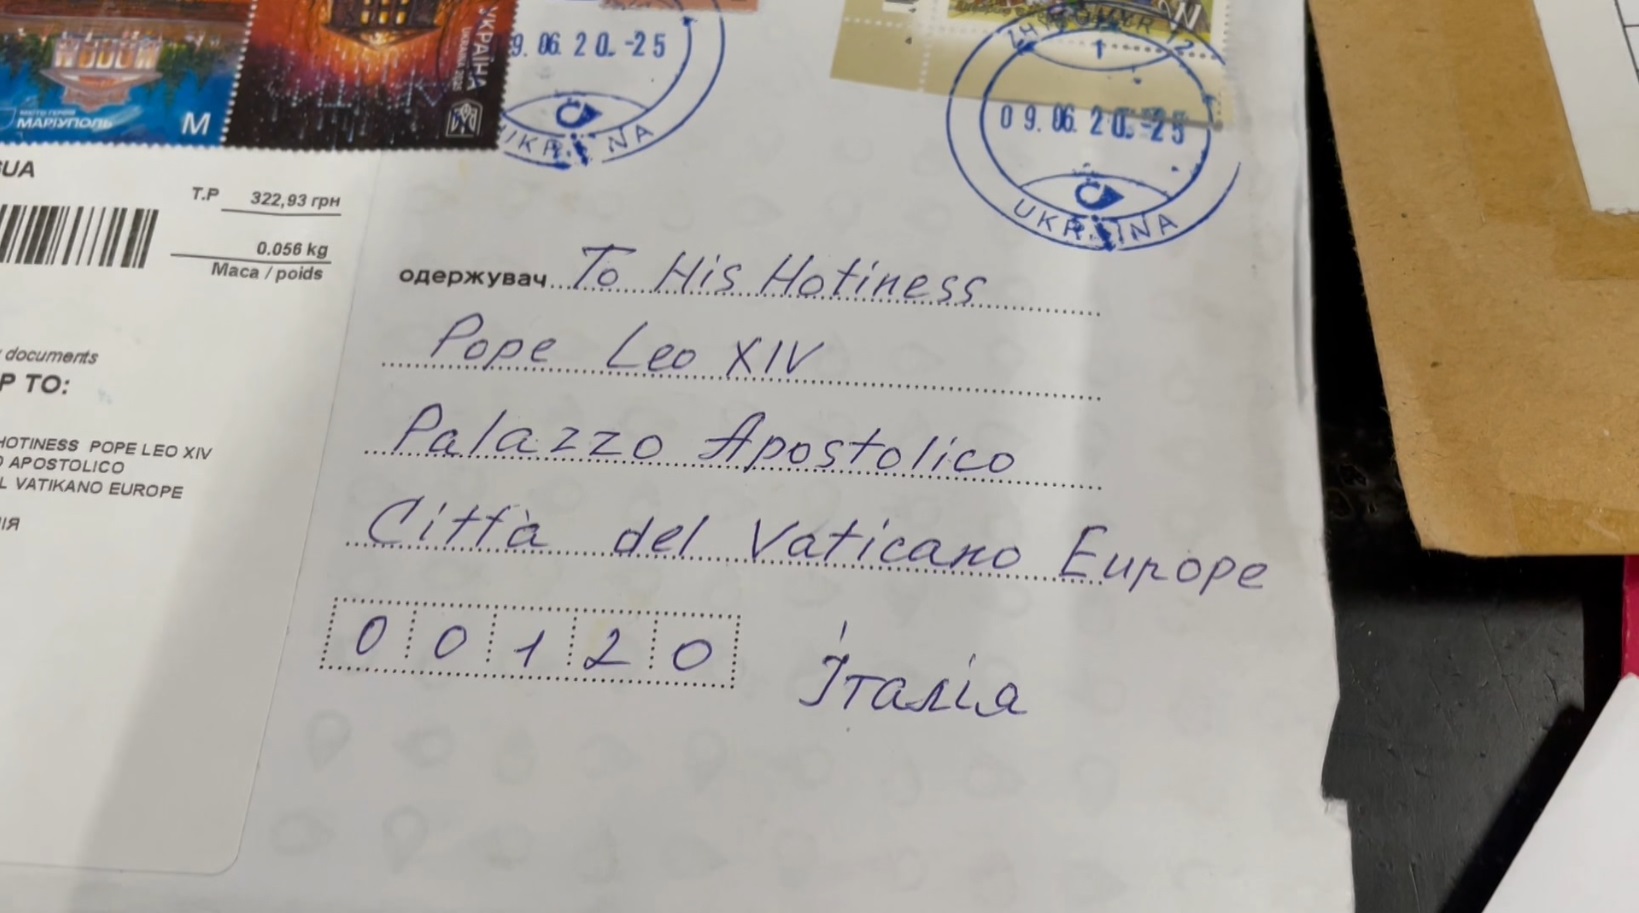 УКРАЇНА
МІСТО ГЕРОЇВ
МАРІУПОЛЬ
M
9. 06. 20. -25
UKRAINA
ZHYTOMYR 12
1
09. 06. 20. -25
UKRAINA
UA
T.P 322,93 грн
0.056 kg
Maca / poids
documents
P TO:
HOTINESS POPE LEO XIV
O APOSTOLICO
L VATIKANO EUROPE
ІЯ
одержувач To His Hotiness
Pope Leo XIV
Palazzo Apostolico
Città del Vaticano Europe
00120 Італія